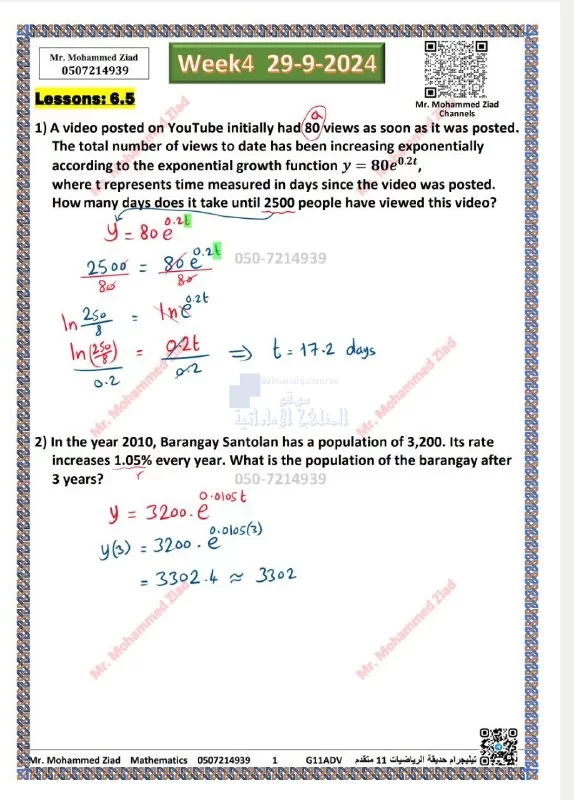 Mr. Mohammed Ziad
0507214939
Week4 29-9-2024
Mr. Mohammed Ziad
Channels
Lessons: 6.5
a
1) A video posted on YouTube initially had 80 views as soon as it was posted.
The total number of views to date has been increasing exponentially
according to the exponential growth function y = 80e^0.2t,
where t represents time measured in days since the video was posted.
How many days does it take until 2500 people have viewed this video?
y = 80 e^0.2t
2500/80 = 80 e^0.2t/80
050-7214939
ln 250/8 = ln e^0.2t
ln(250/8)/0.2 = 0.2t/0.2 ⇒ t = 17.2 days
Mr. Mohammed Ziad
Mr. Mohammed Ziad
almanahj.com/ae
موقع
المناهج الإماراتية
2) In the year 2010, Barangay Santolan has a population of 3,200. Its rate
increases 1.05% every year. What is the population of the barangay after
3 years?
r
050-7214939
y = 3200 . e^0.0105t
y(3) = 3200 . e^0.0105(3)
= 3302.4 ≈ 3302
Mr. Mohammed Ziad
Mr. Mohammed Ziad
Mr. Mohammed Ziad Mathematics 0507214939 1 G11ADV تيليجرام حديقة الرياضيات 11 متقدم